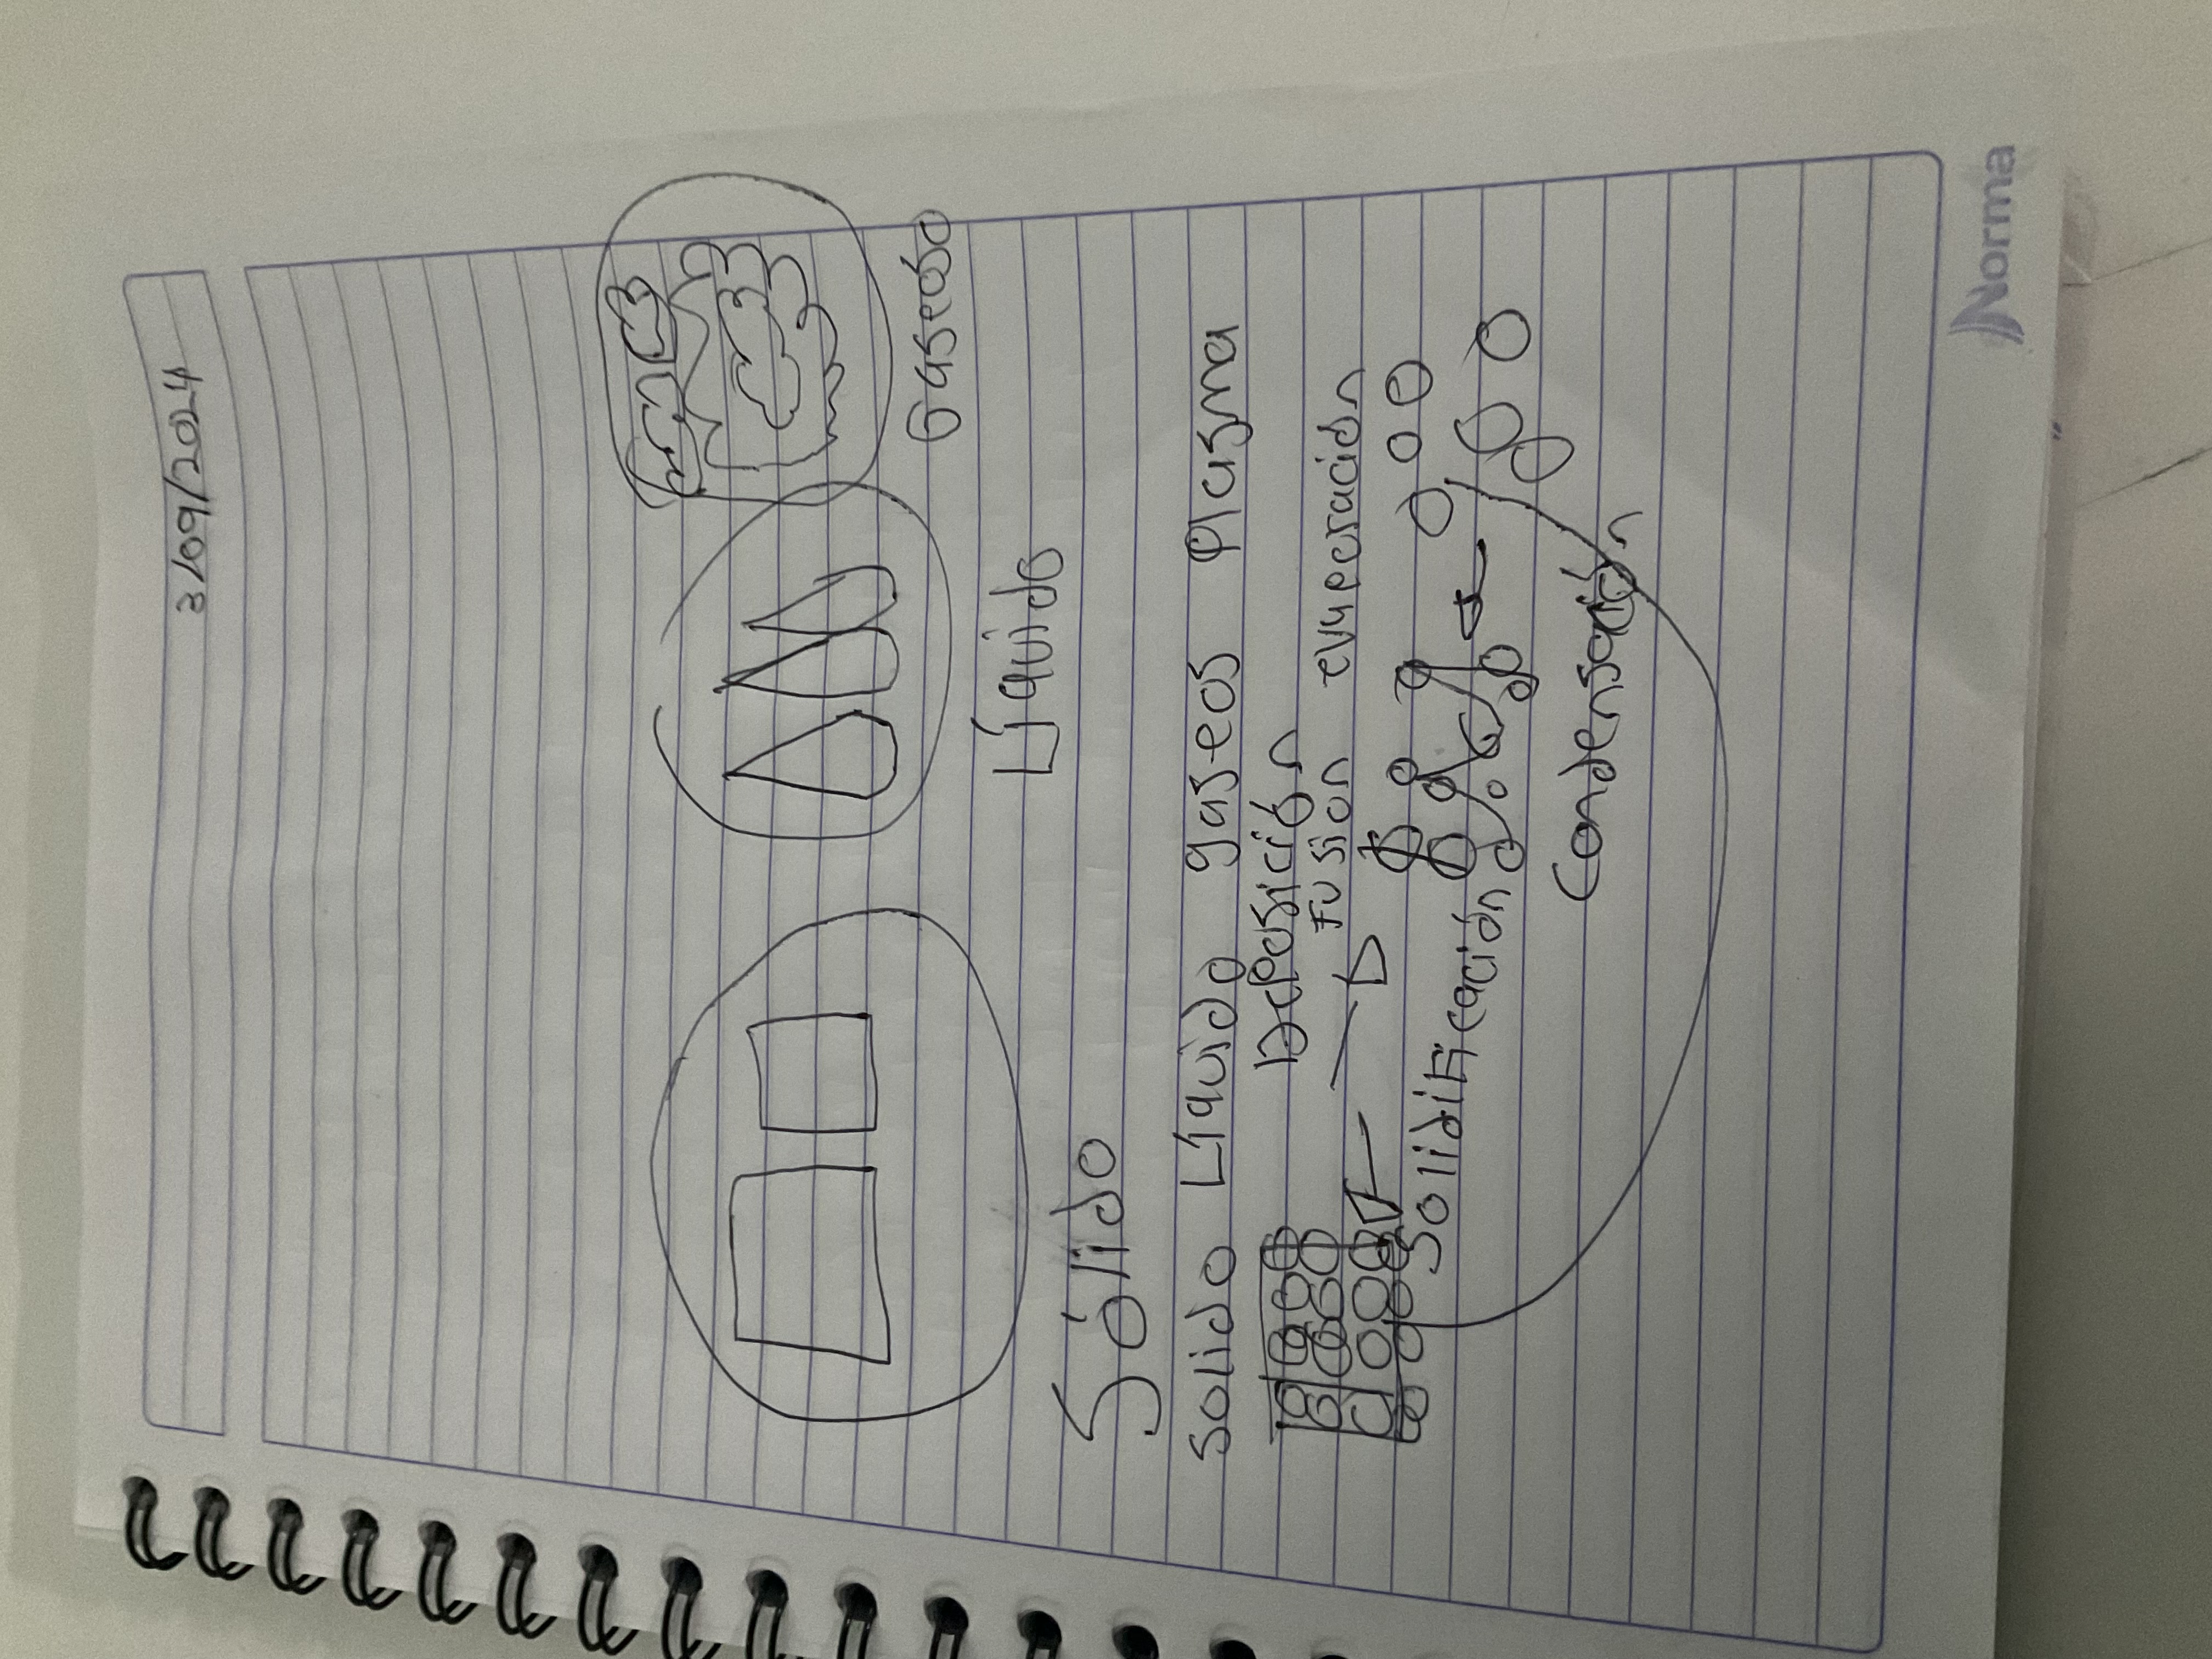 3/09/2024
Sólido Líquido Gaseoso
Solido Líquido gaseos Plasma
Deposición
Fusion evaporación
Solidificación
Condensación
Norma